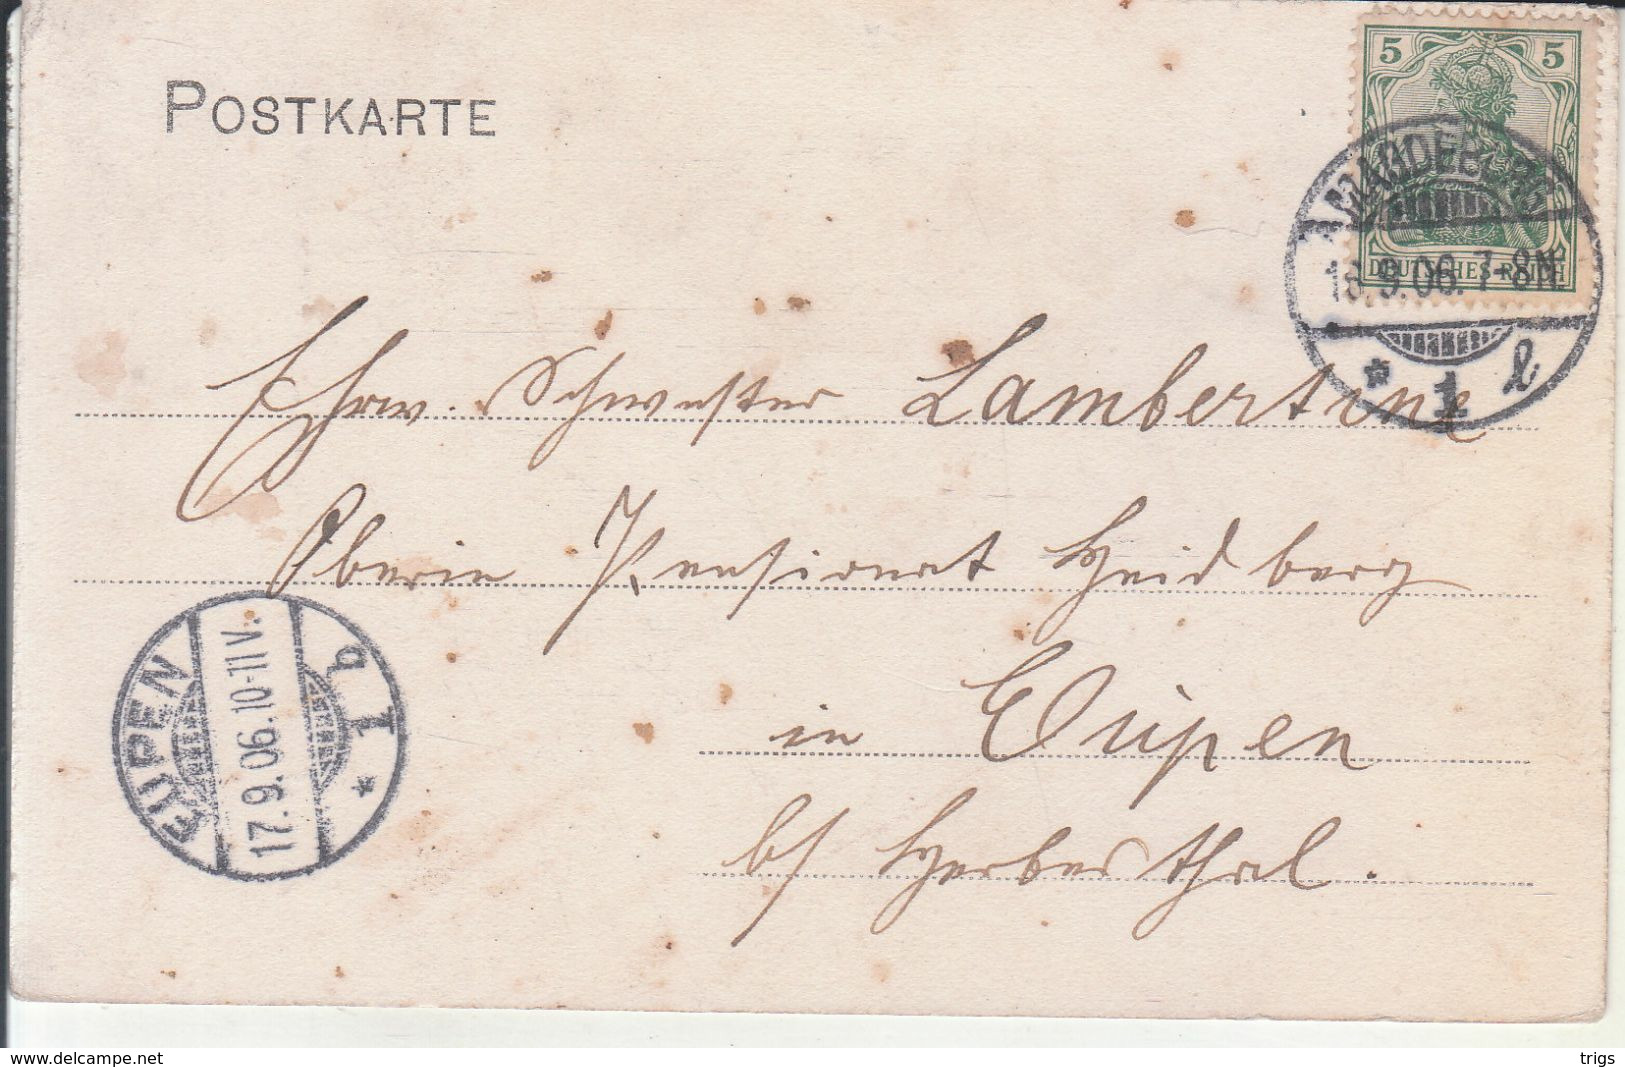 POSTKARTE
5 5
DEUTSCHES REICH
MAGDEBURG
9.06. 7-8N.
* 1 l
Ehrw. Schwester Lambertine
Oberin Pensionat Heidberg
in Eupen
b/ Herbesthal.
EUPEN
17.9.06.10-11V.
* 1 b
www.delcampe.net
trigs